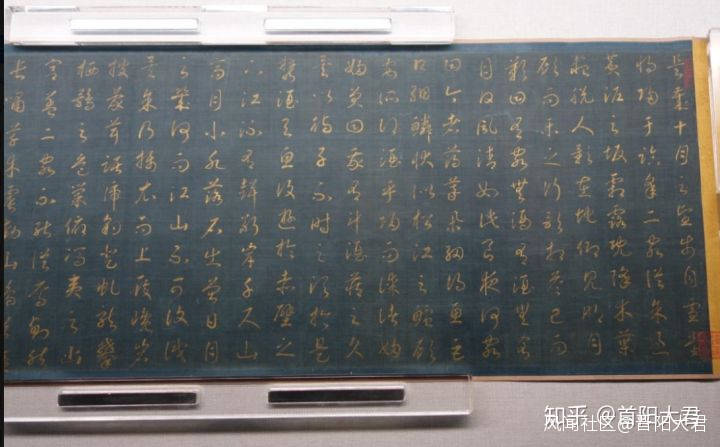 是歲十月之望步自雪堂
將歸于臨皋二客從余過
黃泥之坂霜露既降木葉
盡脫人影在地仰見明月
顧而樂之行歌相答已而
歎曰有客無酒有酒無肴
月白風清如此良夜何客
曰今者薄暮舉網得魚巨
口細鱗狀似松江之鱸顧
安所得酒乎歸而謀諸婦
婦曰我有斗酒藏之久
矣以待子不時之須於是
攜酒與魚復遊於赤壁之
下江流有聲斷岸千尺山
高月小水落石出曾日月
之幾何而江山不可復識
矣予乃攝衣而上履巉岩
披蒙茸踞虎豹登虬龍攀
栖鶻之危巢俯馮夷之幽
宮蓋二客不能從焉劃然
長嘯草木震動山鳴谷
知乎 @首阳大君
风闻社区@首阳大君